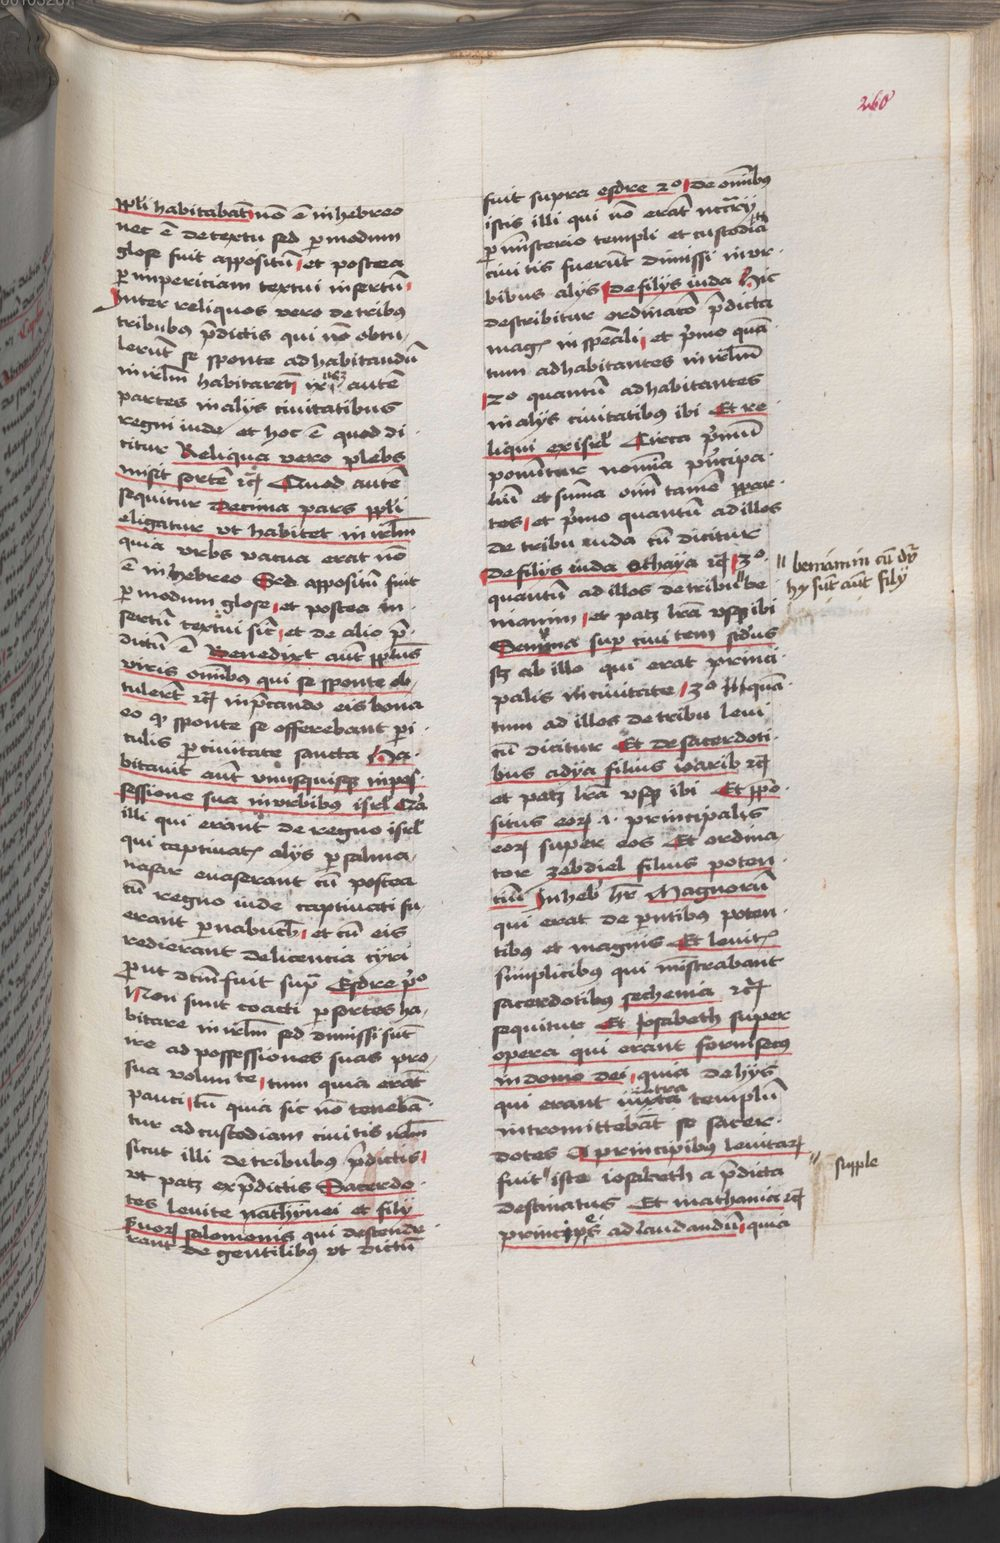 260
ppli habitabāt nō ē in hebreo
nec ē de textu sed p modum
glose fuit appositū et postea
p impericiam textui insertū
Inter reliquos vero de tribus
tribubus p̄dictis qui nō obtu
lerūt se sponte ad habitandū
in irlm̄ habitarēt ix autē
partes in alijs ciuitatibus
regni iude et hoc ē quod di
citur Reliqua vero plebs
misit sortē rc̄ Quod autē
sequitur Decima pars ppli
eligatur vt habitet in irlm̄
quia vrbs vacua erat nō
ē in hebreo Sed appositū fuit
p modum glose et postea in
sertū textui sic̄ et de alio p̄
dictū ē Benedixt aūt pplus
viris om̄ibus qui se sponte ob
tulerūt rc̄ inp̄cando eis bona
eo qꝫ sponte se offerebant pi
culis p ciuitate sancta Ha
bitauit aūt vnusquisqꝫ in pos
sessione sua in vrbibus isrl Nā
illi qui erant de regno isrl
qui captiuatꝭ alijs p salma
nasar euaserant cū postea
cū regno iude captiuati fu
erant p nabuch et cū eis
redierant de licencia cyri
put dc̄m fuit sup̄ Esdre p̄o
Non sunt coacti p sortes ha
bitare in irlm̄ sed dimissi sūt
ire ad possessiones suas pro
sua volunte tum quia erāt
pauci tū quia sic nō tenebā
tur ad custodiam ciuitis irlm̄
sicut illi de tribubus p̄dictis
vt patꝫ ex p̄dictis Sacerdo
tes leuite nathynei et filij
p̄uoꝝ salomonis qui descende
rant de gentilibus vt dictū
fuit supra esdre 2o De om̄ibus
istis illi qui nō erāt nc̄cārij
p min̄sterio templi et custodia
ciuitis fuerūt dimissi in vr
bibus alijs De filijs iuda Hic
describitur ordinatō p̄dicta
magꝭ in spēali et p̄mo quā
tum ad habitantes in irlm̄
2o quantū ad habitantes
in alijs ciuitatibus ibi Et re
liqui ex isrl Circa p̄mū
ponūtur nomīa p̄ncipa
liū et sum̄a om̄i tamē p par
tes et p̄mo quantū ad illos
de tribu iuda cū dicitur
De filijs iuda Athaya rc̄ 2o
quantū ad illos de tribu be
niamin et patꝫ lrā vsqꝫ ibi
sup ciuitem scd̄us
sꝫ ab illo qui erat princi
palis in ciuitate 3o quā
tum ad illos de tribu leui
cū dicitur Et de sacerdoti
bus adya filius ioarib rc̄
et patꝫ lrā vsqꝫ ibi Et p̄po
situs eoꝝ .i. principalis
eoꝝ super eos Et ordina
tor zebdiel filius poten
ciū In heb hr̄ Magnorū
qui erat de p̄ntibus poten
tibus et magnis Et leuitꝭ
simplicibus qui ministrabant
sacerdotibus sechenia rc̄
sequitur Et Josabeth super
opera qui erant forinsecus
in domo dei quia de hijs
qui erant iuxtra templū
intromittebāt se sacer
dotes A principibus leuitaꝝ
fuit iste iosabeth a p̄dicta
destinatus Et mathania rc̄
princeps ad laudandū quia
beniamin cū dr̄
hy sūt aūt filij
supple